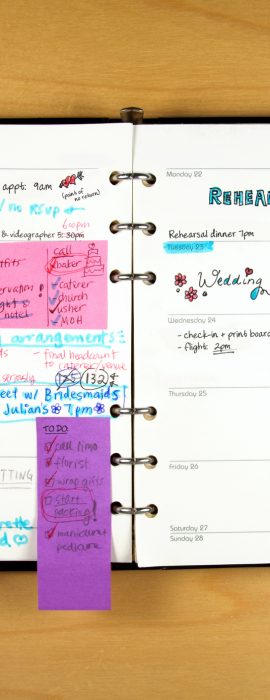 appt: 9am
(point of
no return)
/ no RSVP
6:00pm
& videographer 5:30pm
call
baker
caterer
church
usher
MOH
!
arrangements
- final headcount
to caterer/venue
seriously
125 132
eet w/ Bridesmaids
Julian's 7pm
TO DO:
call limo
florist
wrap gifts
start
packing!
manicure +
pedicure
Monday 22
REHEA
Rehearsal dinner 7pm
Tuesday 23
Wedding
Wednesday 24
- check-in + print board
- flight: 2pm
Thursday 25
Friday 26
Saturday 27
Sunday 28